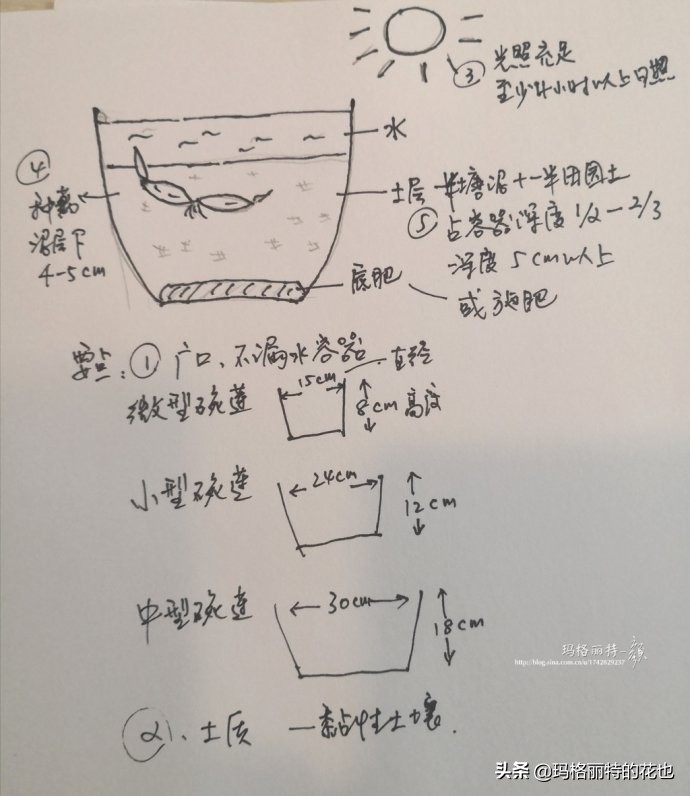 ③ 光照充足
至少4小时以上日照
水
④
种藕
泥层下
4-5cm
土层 半塘泥+一半田园土
⑤ 占容器深度1/2-2/3
深度5cm以上
底肥
或施肥
要点:① 广口、不漏水容器
直径
微型碗莲
15cm
8cm高度
小型碗莲
24cm
12cm
中型碗莲
30cm
18cm
②、土质 —黏性土壤.
玛格丽特一颜
http://blog.sina.com.cn/u/1742829237
头条 @玛格丽特的花也